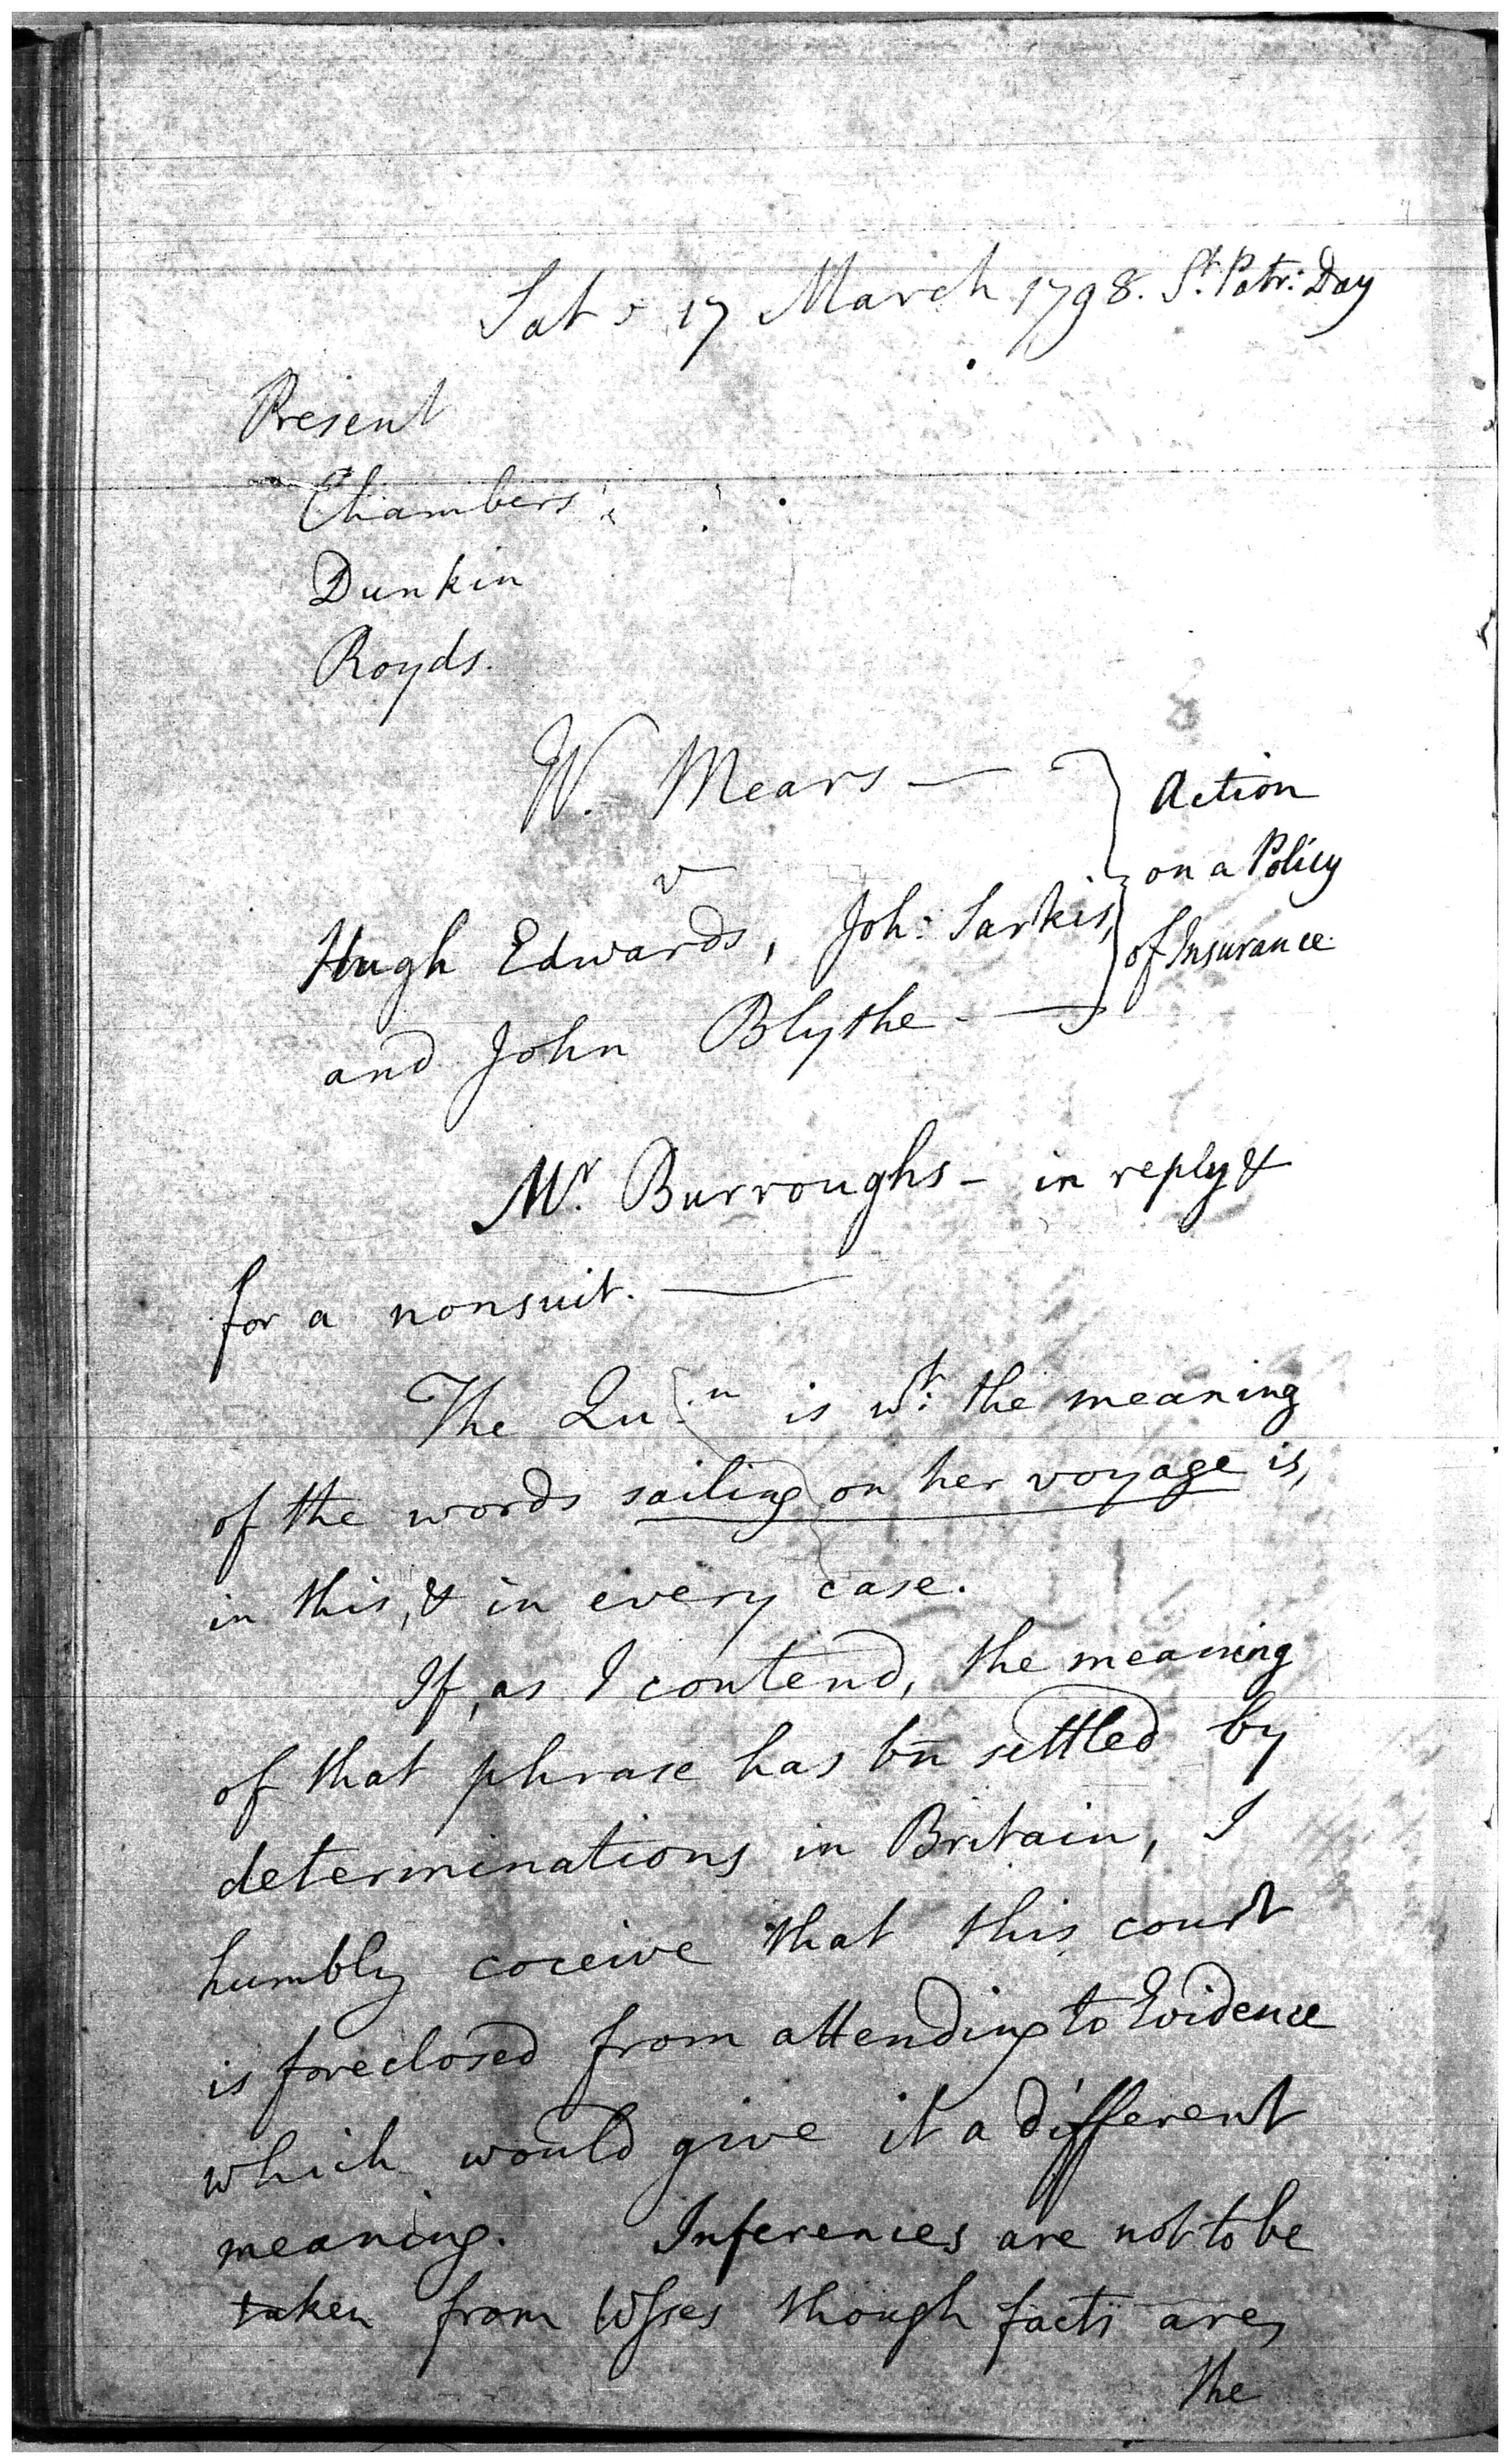 Sat 17 March 1798. St. Patr: Day
Present
Chambers
Dunkin
Royds.
W. Mears —
v
Hugh Edwards, Joh: Sarkis,
and John Blythe. —
Action
on a Policy
of Insurance.
Mr. Burroughs — in reply &
for a nonsuit. —
The Qu:n is wt: the meaning
of the words sailing on her voyage is,
in this, & in every case.
If, as I contend, the meaning
of that phrase has bn settled by
determinations in Britain, I
humbly coceive that this court
is foreclosed from attending to Evidence
which would give it a different
meaning. Inferences are not to be
taken from Wsses though facts are,
the